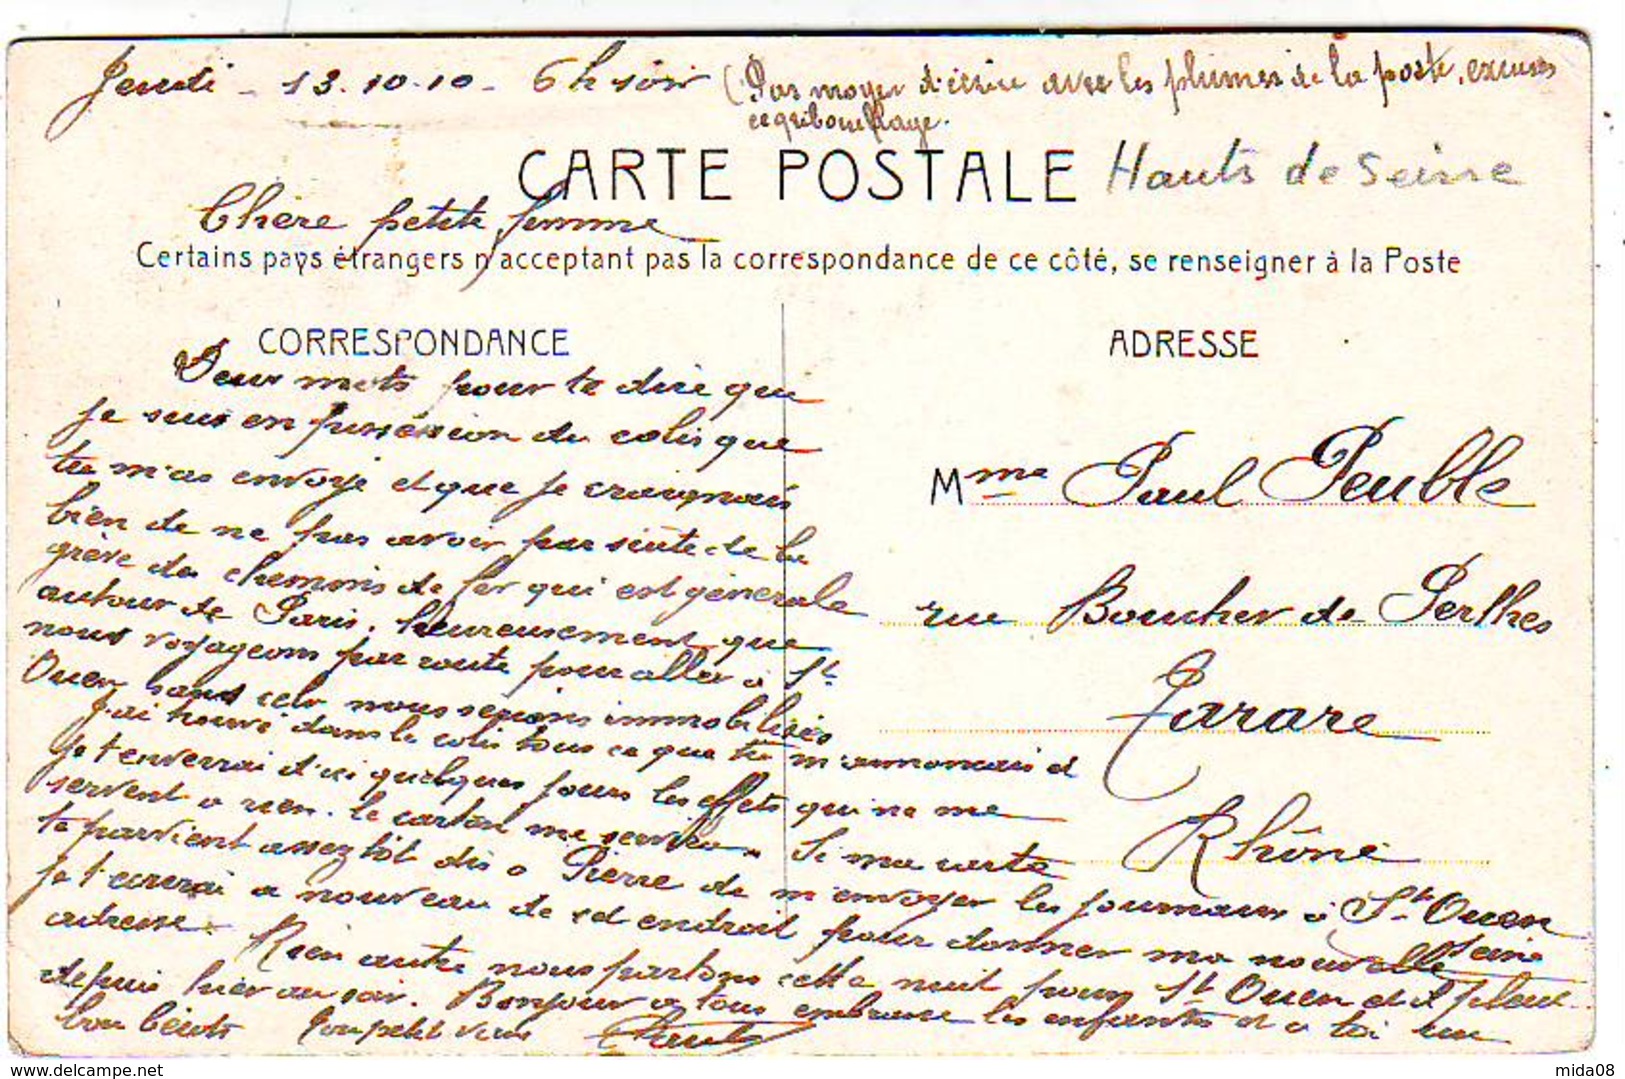 Jeudi - 13.10.10 - 6h soir (Pas moyen d'écrire avec les plumes de la poste, excuses
ce gribouillage.
CARTE POSTALE Hauts de Seine
Chère petite femme
Certains pays étrangers n'acceptant pas la correspondance de ce côté, se renseigner à la Poste
CORRESPONDANCE
Deux mots pour te dire que
je suis en possession du colis que
tu m'as envoyé et que je craignais
bien de ne pas avoir par suite de la
grève des chemins de fer qui est générale
autour de Paris. heureusement que
nous voyageons par route pour aller à St
Ouen sans cela nous serions immobilisés
J'ai trouvé dans le colis tous ce que tu m'annonçais et
je t'enverrai d'ici quelques jours les effets qui ne me
servent à rien. le carton me servira. Si ma carte
te parvient assez tôt dis à Pierre de m'envoyer les journaux à St Ouen
Seine
je t'écrirai à nouveau de cet endroit pour donner ma nouvelle
adresse. Rien autre nous partons cette nuit pour St Ouen et il pleut
depuis hier au soir. Bonjour à tous embrasse les enfants et à toi un
bon Ton petit vieux
ADRESSE
Mme Paul Peuble
rue Boucher de Perthes
Tarare
Rhône
delcampe.net
mida08